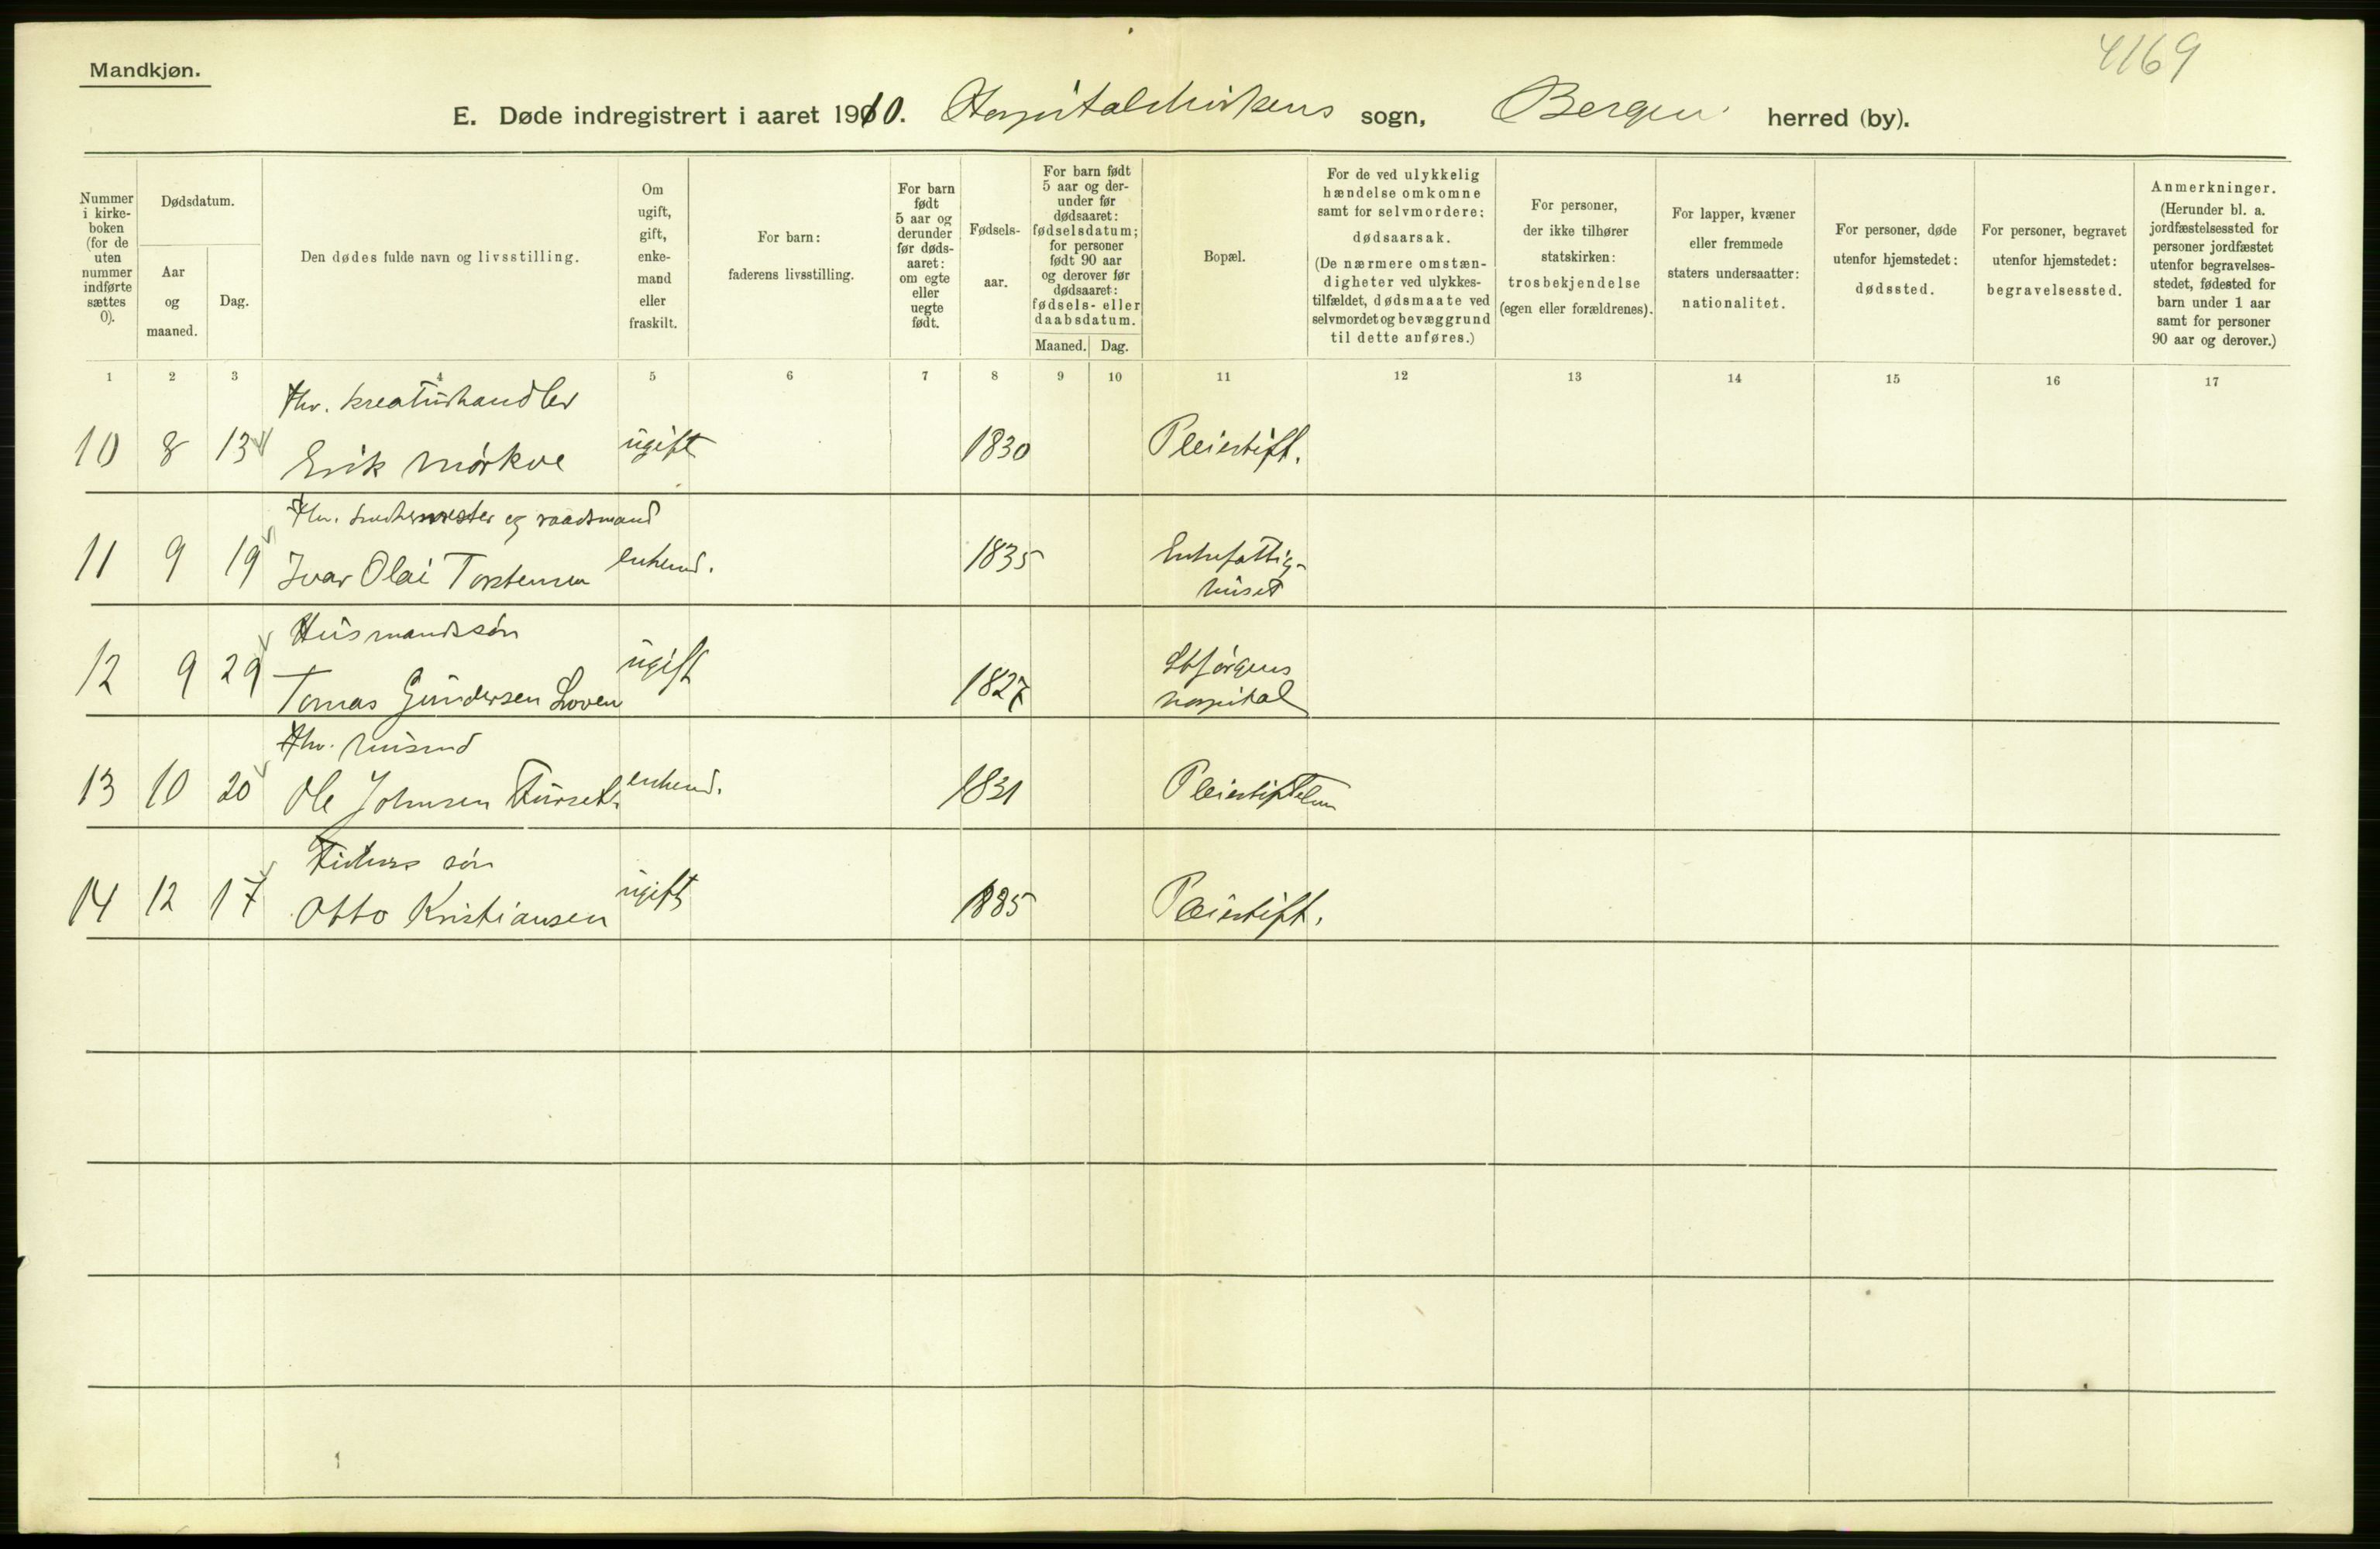 4169
Mandkjøn.
E. Døde indregistrert i aaret 1910. Hospitalskirkens sogn, Bergen herred (by).
Nummer i kirkeboken (for de uten nummer indførte sættes 0).
Dødsdatum.
Aar og maaned.
Dag.
Den dødes fulde navn og livsstilling.
Om ugift, gift, enkemand eller fraskilt.
For barn: faderens livsstilling.
For barn født 5 aar og derunder før dødsaaret: om egte eller uegte født.
Fødselsaar.
For barn født 5 aar og derunder før dødsaaret: fødselsdatum; for personer født 90 aar og derover før dødsaaret: fødsels- eller daabsdatum.
Maaned. Dag.
Bopæl.
For de ved ulykkelig hændelse omkomne samt for selvmordere: dødsaarsak. (De nærmere omstændigheter ved ulykkestilfældet, dødsmaate ved selvmordet og bevæggrund til dette anføres.)
For personer, der ikke tilhører statskirken: trosbekjendelse (egen eller forældrenes).
For lapper, kvæner eller fremmede staters undersaatter: nationalitet.
For personer, døde utenfor hjemstedet: dødssted.
For personer, begravet utenfor hjemstedet: begravelsessted.
Anmerkninger. (Herunder bl. a. jordfæstelsessted for personer jordfæstet utenfor begravelsesstedet, fødested for barn under 1 aar samt for personer 90 aar og derover.)
1 2 3 4 5 6 7 8 9 10 11 12 13 14 15 16 17
fhv. kreaturhandler
10 8 13 Erik Mørkve ugift 1830 Pleiestift.
fhv. og raadsmand
11 9 19 Ivar Olai Torstensen enkemd. 1835 Enkefattig-
huset
Husmandssøn
12 9 29 Tomas Gundersen Loven ugift 1827 St Jørgens
hospital
fhv. husmd
13 10 20 Ole Johnsen Furseth enkemd. 1831 Pleiestiftelsen
Fiskers søn
14 12 17 Otto Kristiansen ugift 1885 Pleiestift.